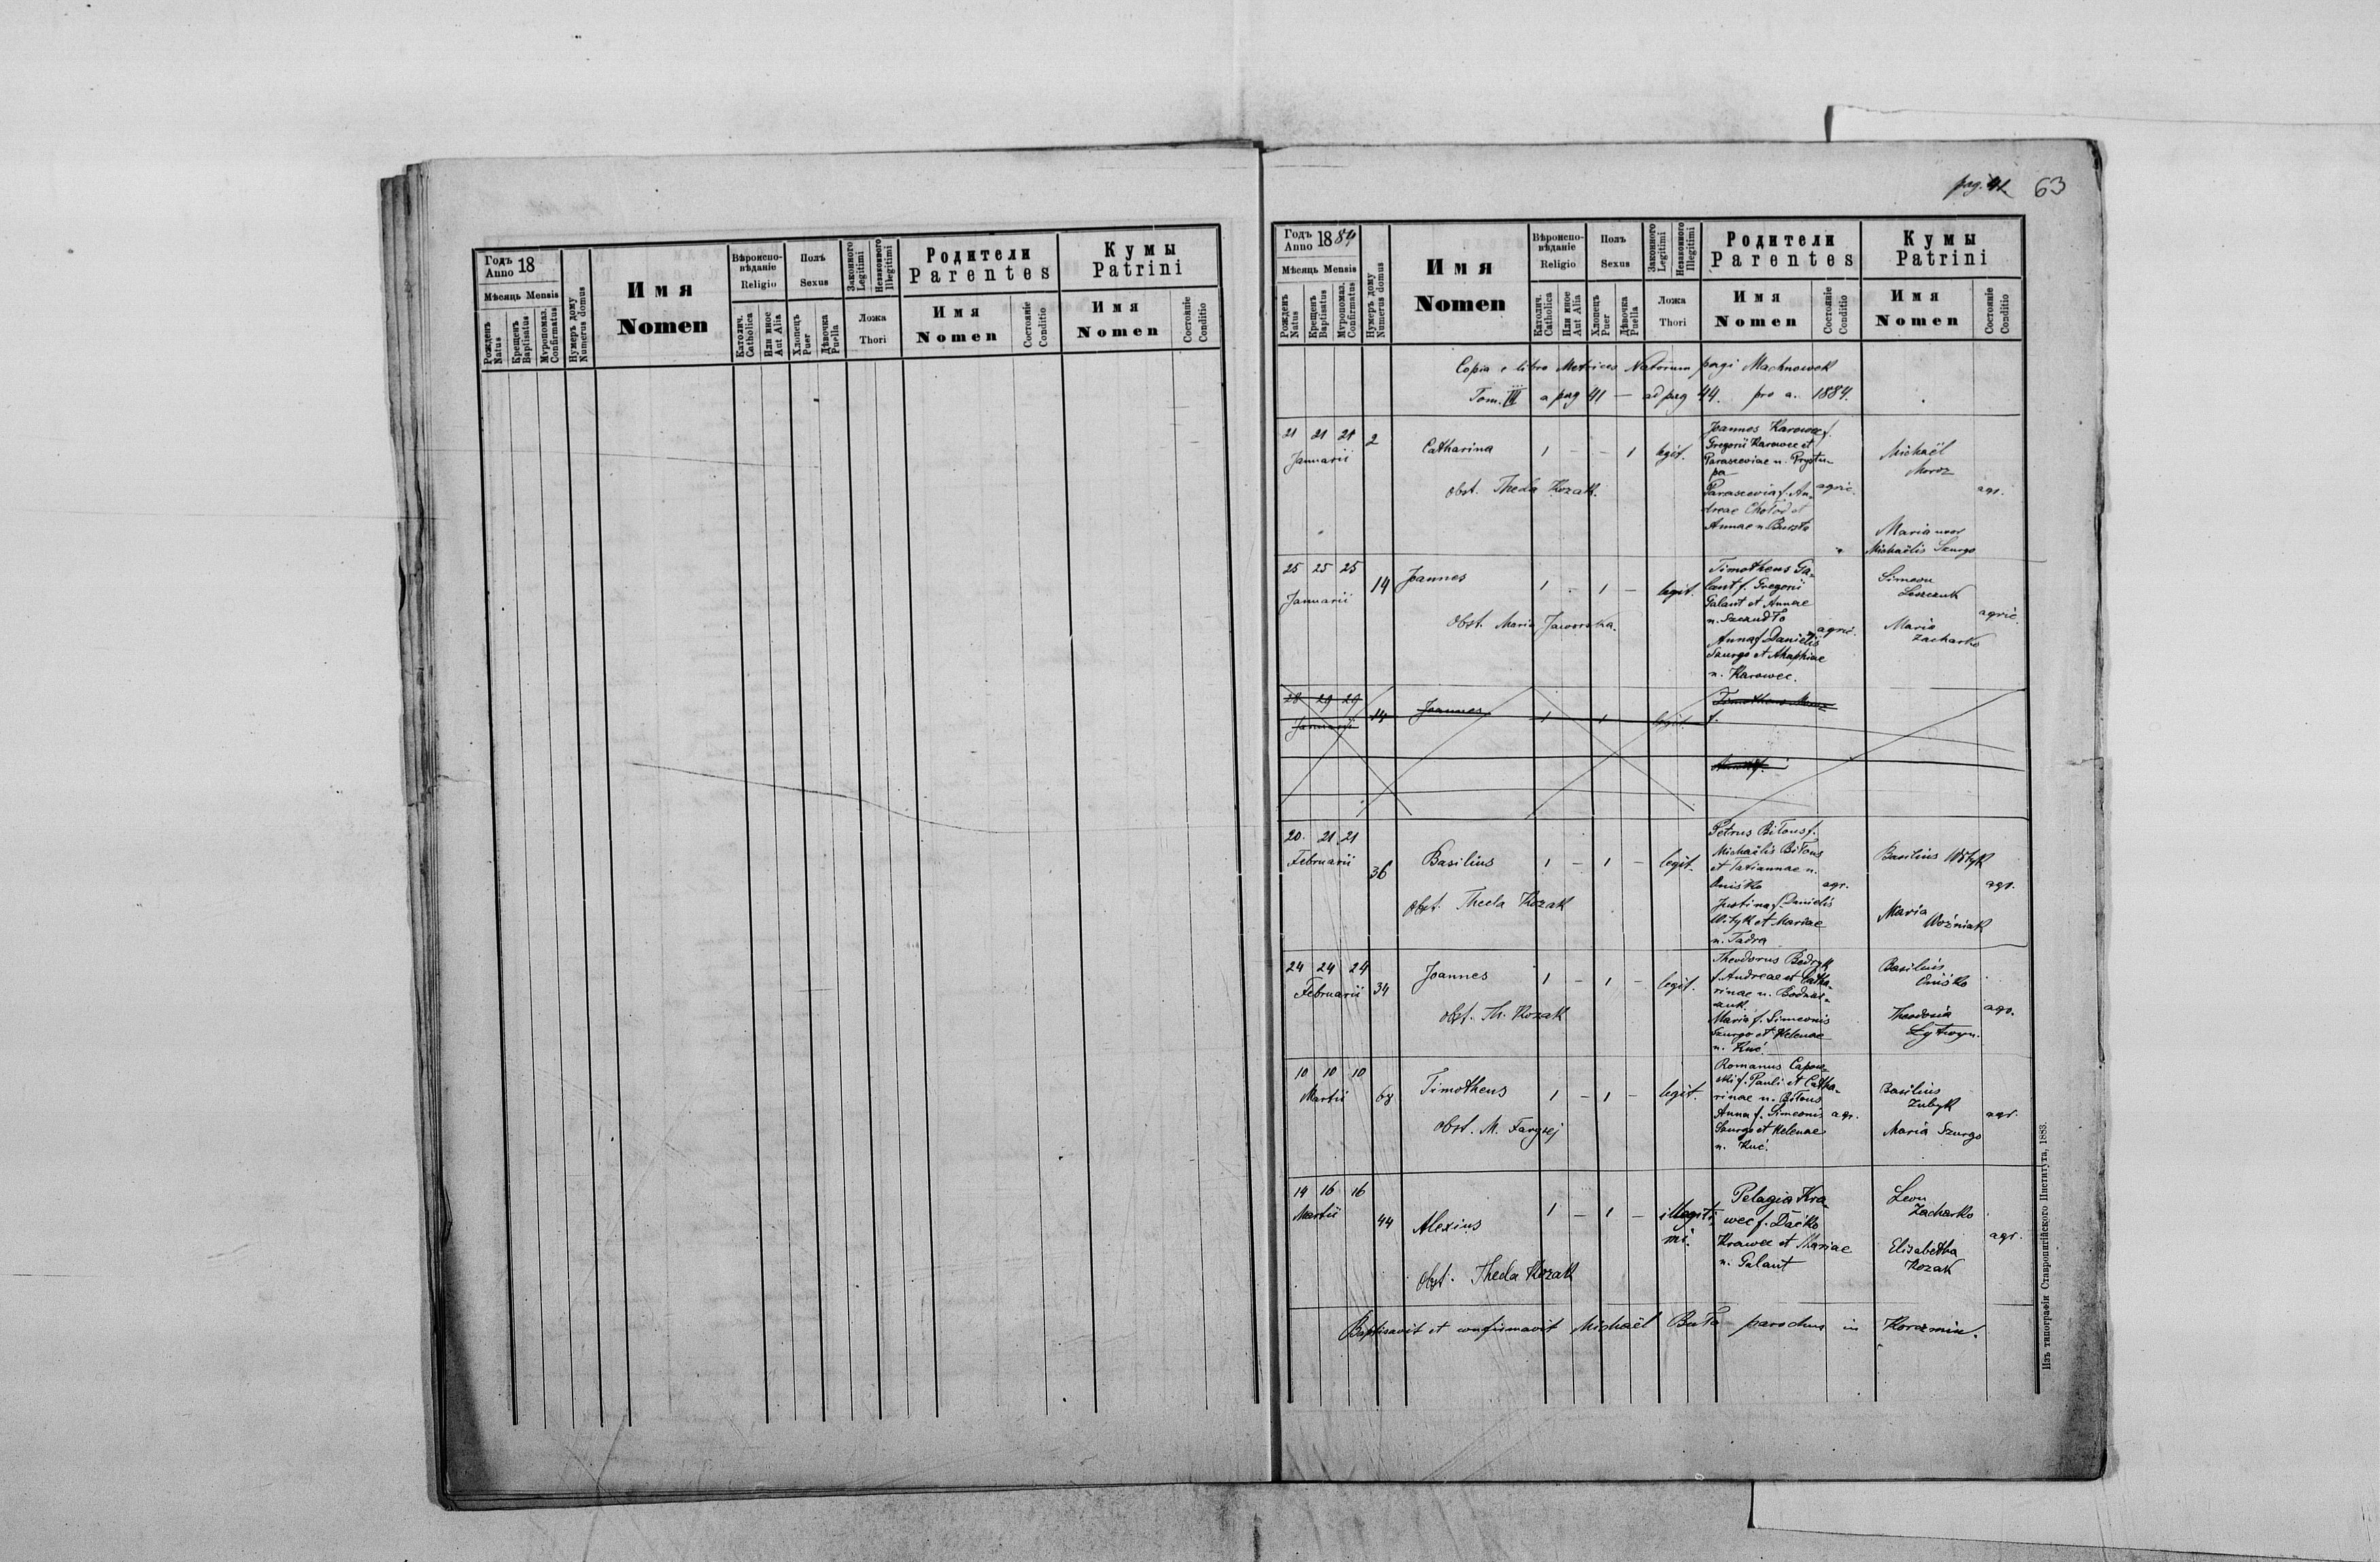 Годъ Anno 18
Мѣсяць Mensis
Рожденъ Natus
Крещенъ Baptisatus
Мѵропомаз. Confirmatus
Нумеръ дому Numerus domus
Имя
Nomen
Вѣроиспо-
вѣданіе
Religio
Католич. Catholica
Или иное Aut Alia
Полъ
Sexus
Хлопецъ Puer
Дѣвочка Puella
Законного Legitimi
Незаконного Illegitimi
Ложа
Thori
Родители
Parentes
Имя
Nomen
Состояніе Conditio
Кумы
Patrini
Имя
Nomen
Состояніе Conditio
pag. 41 63
Годъ Anno 1884
Мѣсяць Mensis
Рожденъ Natus
Крещенъ Baptisatus
Мѵропомаз. Confirmatus
Нумеръ дому Numerus domus
Имя
Nomen
Вѣроиспо-
вѣданіе
Religio
Католич. Catholica
Или иное Aut Alia
Полъ
Sexus
Хлопецъ Puer
Дѣвочка Puella
Законного Legitimi
Незаконного Illegitimi
Ложа
Thori
Родители
Parentes
Имя
Nomen
Состояніе Conditio
Кумы
Patrini
Имя
Nomen
Состояніе Conditio
Copia e libro Metrices Natorum pagi Machnowek
Tom. III a pag 41 — ad pag 44. pro a. 1884.
21 21 21
Januarii
2
Catharina
1 - - 1 legit.
obst. Theda Kozak.
Joannes Karowec f.
Gregorii Karowec et
Parasceviae n. Prystu-
pa
Parascevia f. An-
dreae Chołod et
Annae n. Burzta
agric.
Michaël
Moroz
Maria uxor
Michaëlis Szurgo
agr.
25 25 25
Januarii
14
Joannes
1 - 1 - legit.
Obst. Maria Jaworska.
Timotheus Ga-
lant f. Gregorii
Galant et Annae
n. Szczudło
Anna f. Danielis
Szurgo et Ahaphiae
n. Karowec.
agric.
Simeon
Leszczuk
Maria
Zacharko
agric.
28 29 29
Januarii
14
Joannes
1 1 legit.
Timotheus
f.
20 21 21
Februarii
36
Basilius
1 - 1 - legit.
obst. Theda Kozak
Petrus Biłous f.
Michaëlis Biłous
et Tatiannae n.
Oniśko
Justina f. Danielis
Wityk et Mariae
n. Tadra
agr.
Basilius Wityk
Maria
Woźniak
agr.
24 24 24
Februarii
34
Joannes
1 - 1 - legit.
obst. Th. Kozak
Theodorus Bedryk
f. Andreae et Catha-
rinae n. Bodnar-
czuk.
Maria f. Simeonis
Szurgo et Helenae
n. Kuć.
Basilius
Oniśko
Theodosia
Lytwyn.
agr.
10 10 10
Martii
68
Timotheus
1 - 1 - legit.
obst. M. Fargiej
Romanus Capow-
ski f. Pauli et Catha-
rinae n. Biłous
Anna f. Simeonis
Szurgo et Helenae
n. Kuć.
agr.
Basilius
Zubyk
Maria Szurgo
agr.
14 16 16
Martii
44
Alexius
1 - 1 - illegiti-
mi.
Obst. Theda Kozak
Pelagia Kra-
wec f. Daćko
Krawec et Mariae
n. Galant
Leon
Zacharko
Elisabetha
Kozak
agr.
Baptisavit et confirmavit Michaël Buła parochus in Korczmin.
Изъ типографіи Ставропигійского Института, 1883.